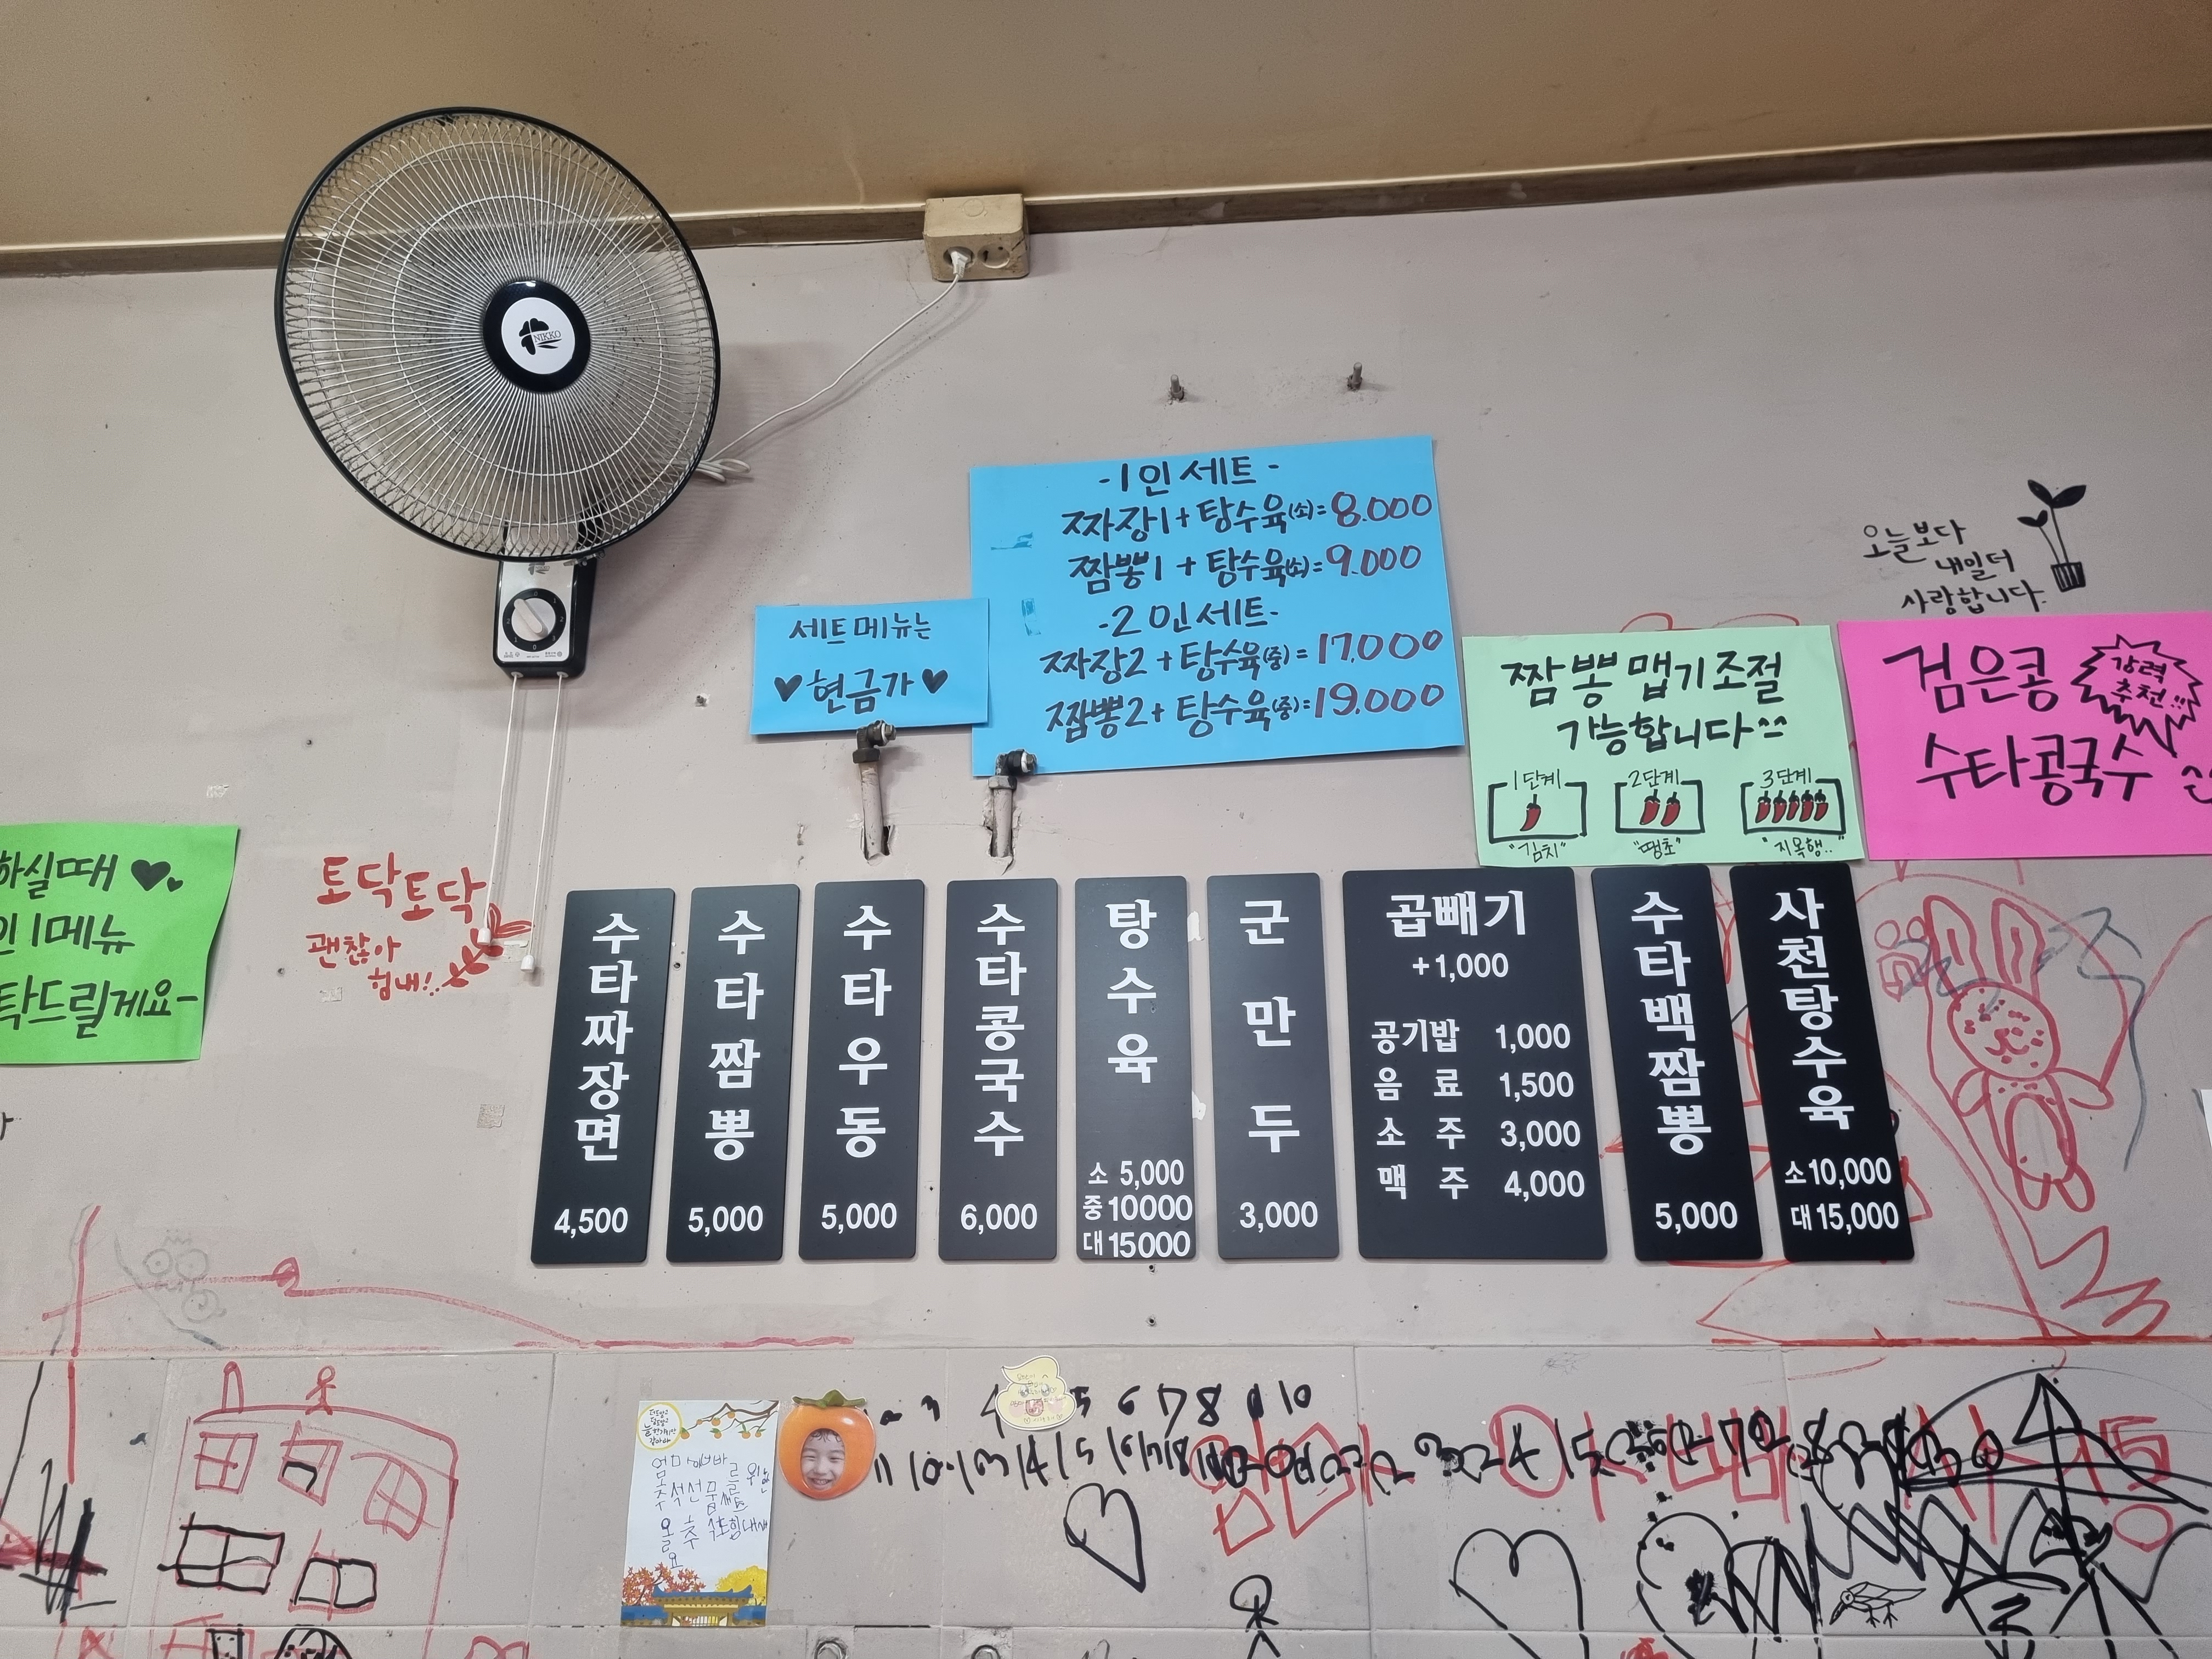 NIKKO
-1인 세트-
짜장1+탕수육(소)=8.000
짬뽕1+탕수육(소)=9.000
-2인 세트-
짜장2+탕수육(중)=17.000
짬뽕2+탕수육(중)=19.000
세트메뉴는
♥현금가♥
오늘보다
내일 더
사랑합니다.
짬뽕 맵기조절
가능합니다^^
1단계
2단계
3단계
"김치"
"땡초"
"지옥행.."
검은콩
강력
추천!!!
수타콩국수
하실때 ♥
인 1메뉴
탁드릴게요~
토닥토닥
괜찮아
힘내!
수타짜장면
4,500
수타짬뽕
5,000
수타우동
5,000
수타콩국수
6,000
탕수육
소 5,000
중 10000
대 15000
군만두
3,000
곱빼기
+1,000
공기밥 1,000
음료 1,500
소주 3,000
맥주 4,000
수타백짬뽕
5,000
사천탕수육
소 10,000
대 15,000
4 5 6 7 8 9 10